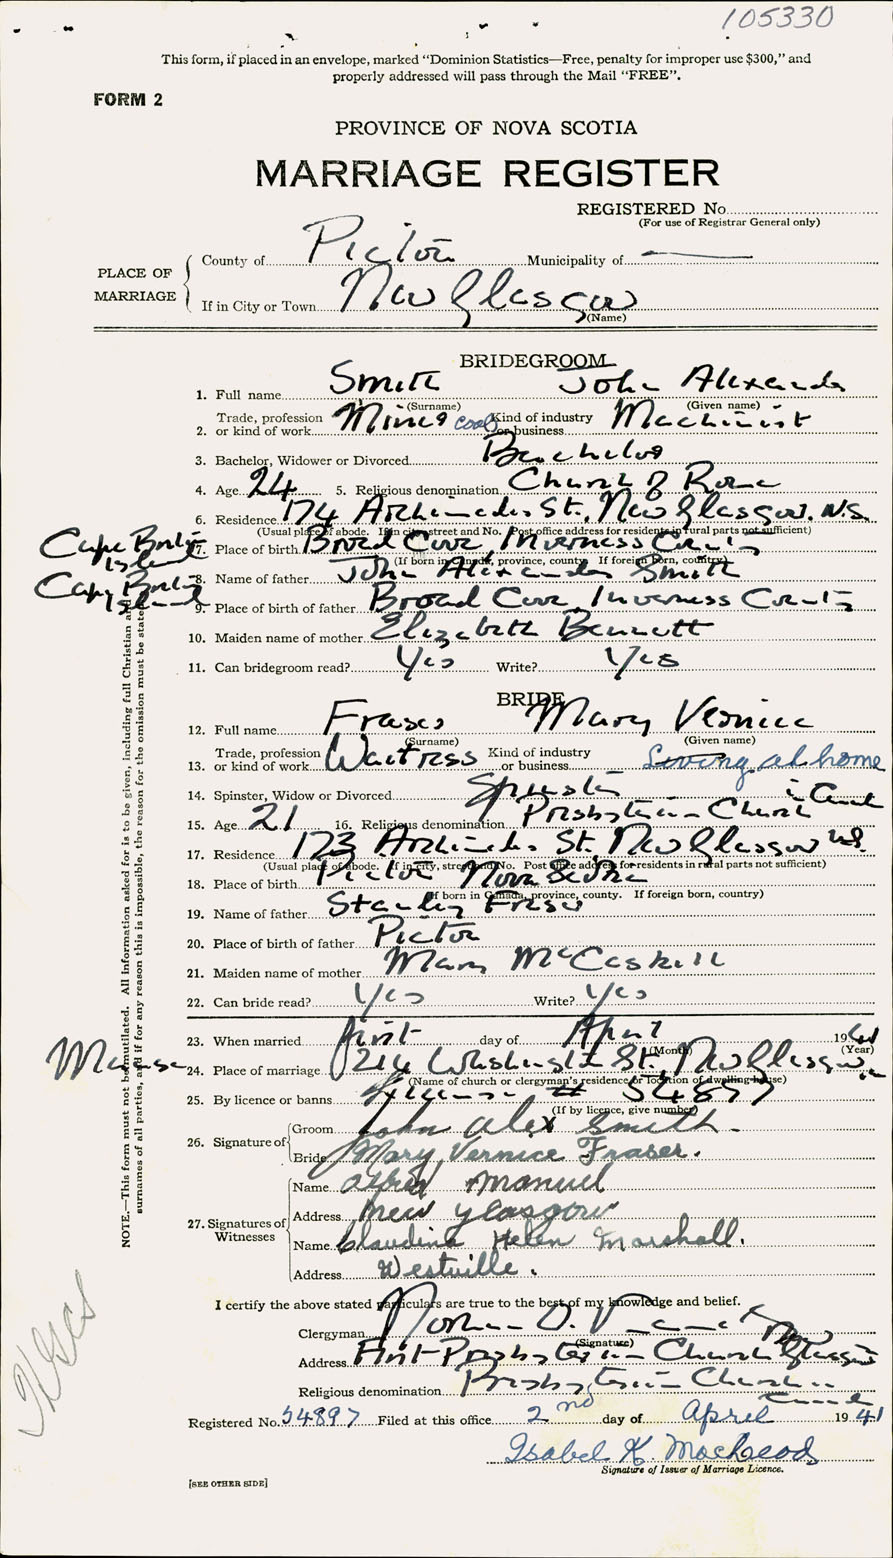 105330
This form, if placed in an envelope, marked “Dominion Statistics—Free, penalty for improper use $300,” and
properly addressed will pass through the Mail “FREE”.
FORM 2
PROVINCE OF NOVA SCOTIA
MARRIAGE REGISTER
REGISTERED No.
(For use of Registrar General only)
PLACE OF MARRIAGE
County of Pictou Municipality of —
If in City or Town New Glasgow
(Name)
BRIDEGROOM
1. Full name Smith John Alexander
(Surname) (Given name)
Trade, profession Kind of industry
2. or kind of work Miner coal or business Machinist
3. Bachelor, Widower or Divorced Bachelor
4. Age 24 5. Religious denomination Church of Rome
6. Residence 174 Archimedes St. New Glasgow. N.S.
(Usual place of abode. If in city, street and No. Post office address for residents in rural parts not sufficient)
Cape Breton Island
7. Place of birth Broad Cove, Inverness County
(If born in Canada, province, county. If foreign born, country)
8. Name of father John Alexander Smith
Cape Breton Island
9. Place of birth of father Broad Cove, Inverness County
10. Maiden name of mother Elizabeth Bennett
11. Can bridegroom read? Yes Write? Yes
BRIDE
12. Full name Fraser Mary Vernice
(Surname) (Given name)
Trade, profession Kind of industry
13. or kind of work Waitress or business Living at home
14. Spinster, Widow or Divorced Spinster
15. Age 21 16. Religious denomination Presbyterian Church in Canada
17. Residence 173 Archimedes St. New Glasgow N.S.
(Usual place of abode. If in city, street and No. Post office address for residents in rural parts not sufficient)
18. Place of birth Pictou Nova Scotia
(If born in Canada, province, county. If foreign born, country)
19. Name of father Stanley Fraser
20. Place of birth of father Pictou
21. Maiden name of mother Mary McCaskill
22. Can bride read? Yes Write? Yes
23. When married first day of April 1941
(Month) (Year)
Manse
24. Place of marriage 214 Washington St. New Glasgow
(Name of church or clergyman's residence or location of dwelling-house)
25. By licence or banns License # 54897
(If by licence, give number)
26. Signature of
Groom John Alex Smith.
Bride Mary Vernice Fraser.
27. Signatures of Witnesses
Name Alfred Manuel
Address New Glasgow
Name Claudina Helen Marshall.
Address Westville.
I certify the above stated particulars are true to the best of my knowledge and belief.
Clergyman Norman D.
(Signature)
Address First Presbyterian Church New Glasgow
Religious denomination Presbyterian Church in Canada
Registered No. 54897 Filed at this office 2nd day of April 1941
Isabel K. MacLeod
Signature of Issuer of Marriage Licence.
[SEE OTHER SIDE]
NOTE.—This form must not be mutilated. All information asked for is to be given, including full Christian and
surnames of all parties, and if for any reason this is impossible, the reason for the omission must be stated